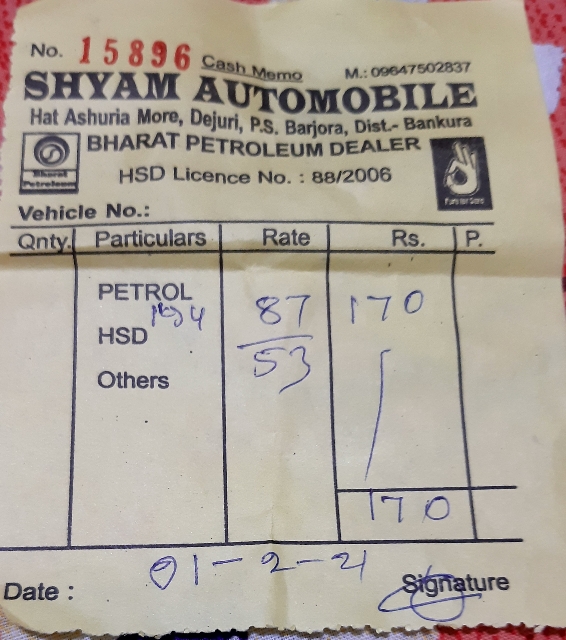 No. 15896 Cash Memo M.: 09647502837
SHYAM AUTOMOBILE
Hat Ashuria More, Dejuri, P.S. Barjora, Dist.- Bankura
BHARAT PETROLEUM DEALER
Bharat
Petroleum
HSD Licence No. : 88/2006
Pure for Sure
Vehicle No.:
Qnty. Particulars Rate Rs. P.
PETROL 87 170
HSD 53
Others
170
Date : 01-2-21
Signature